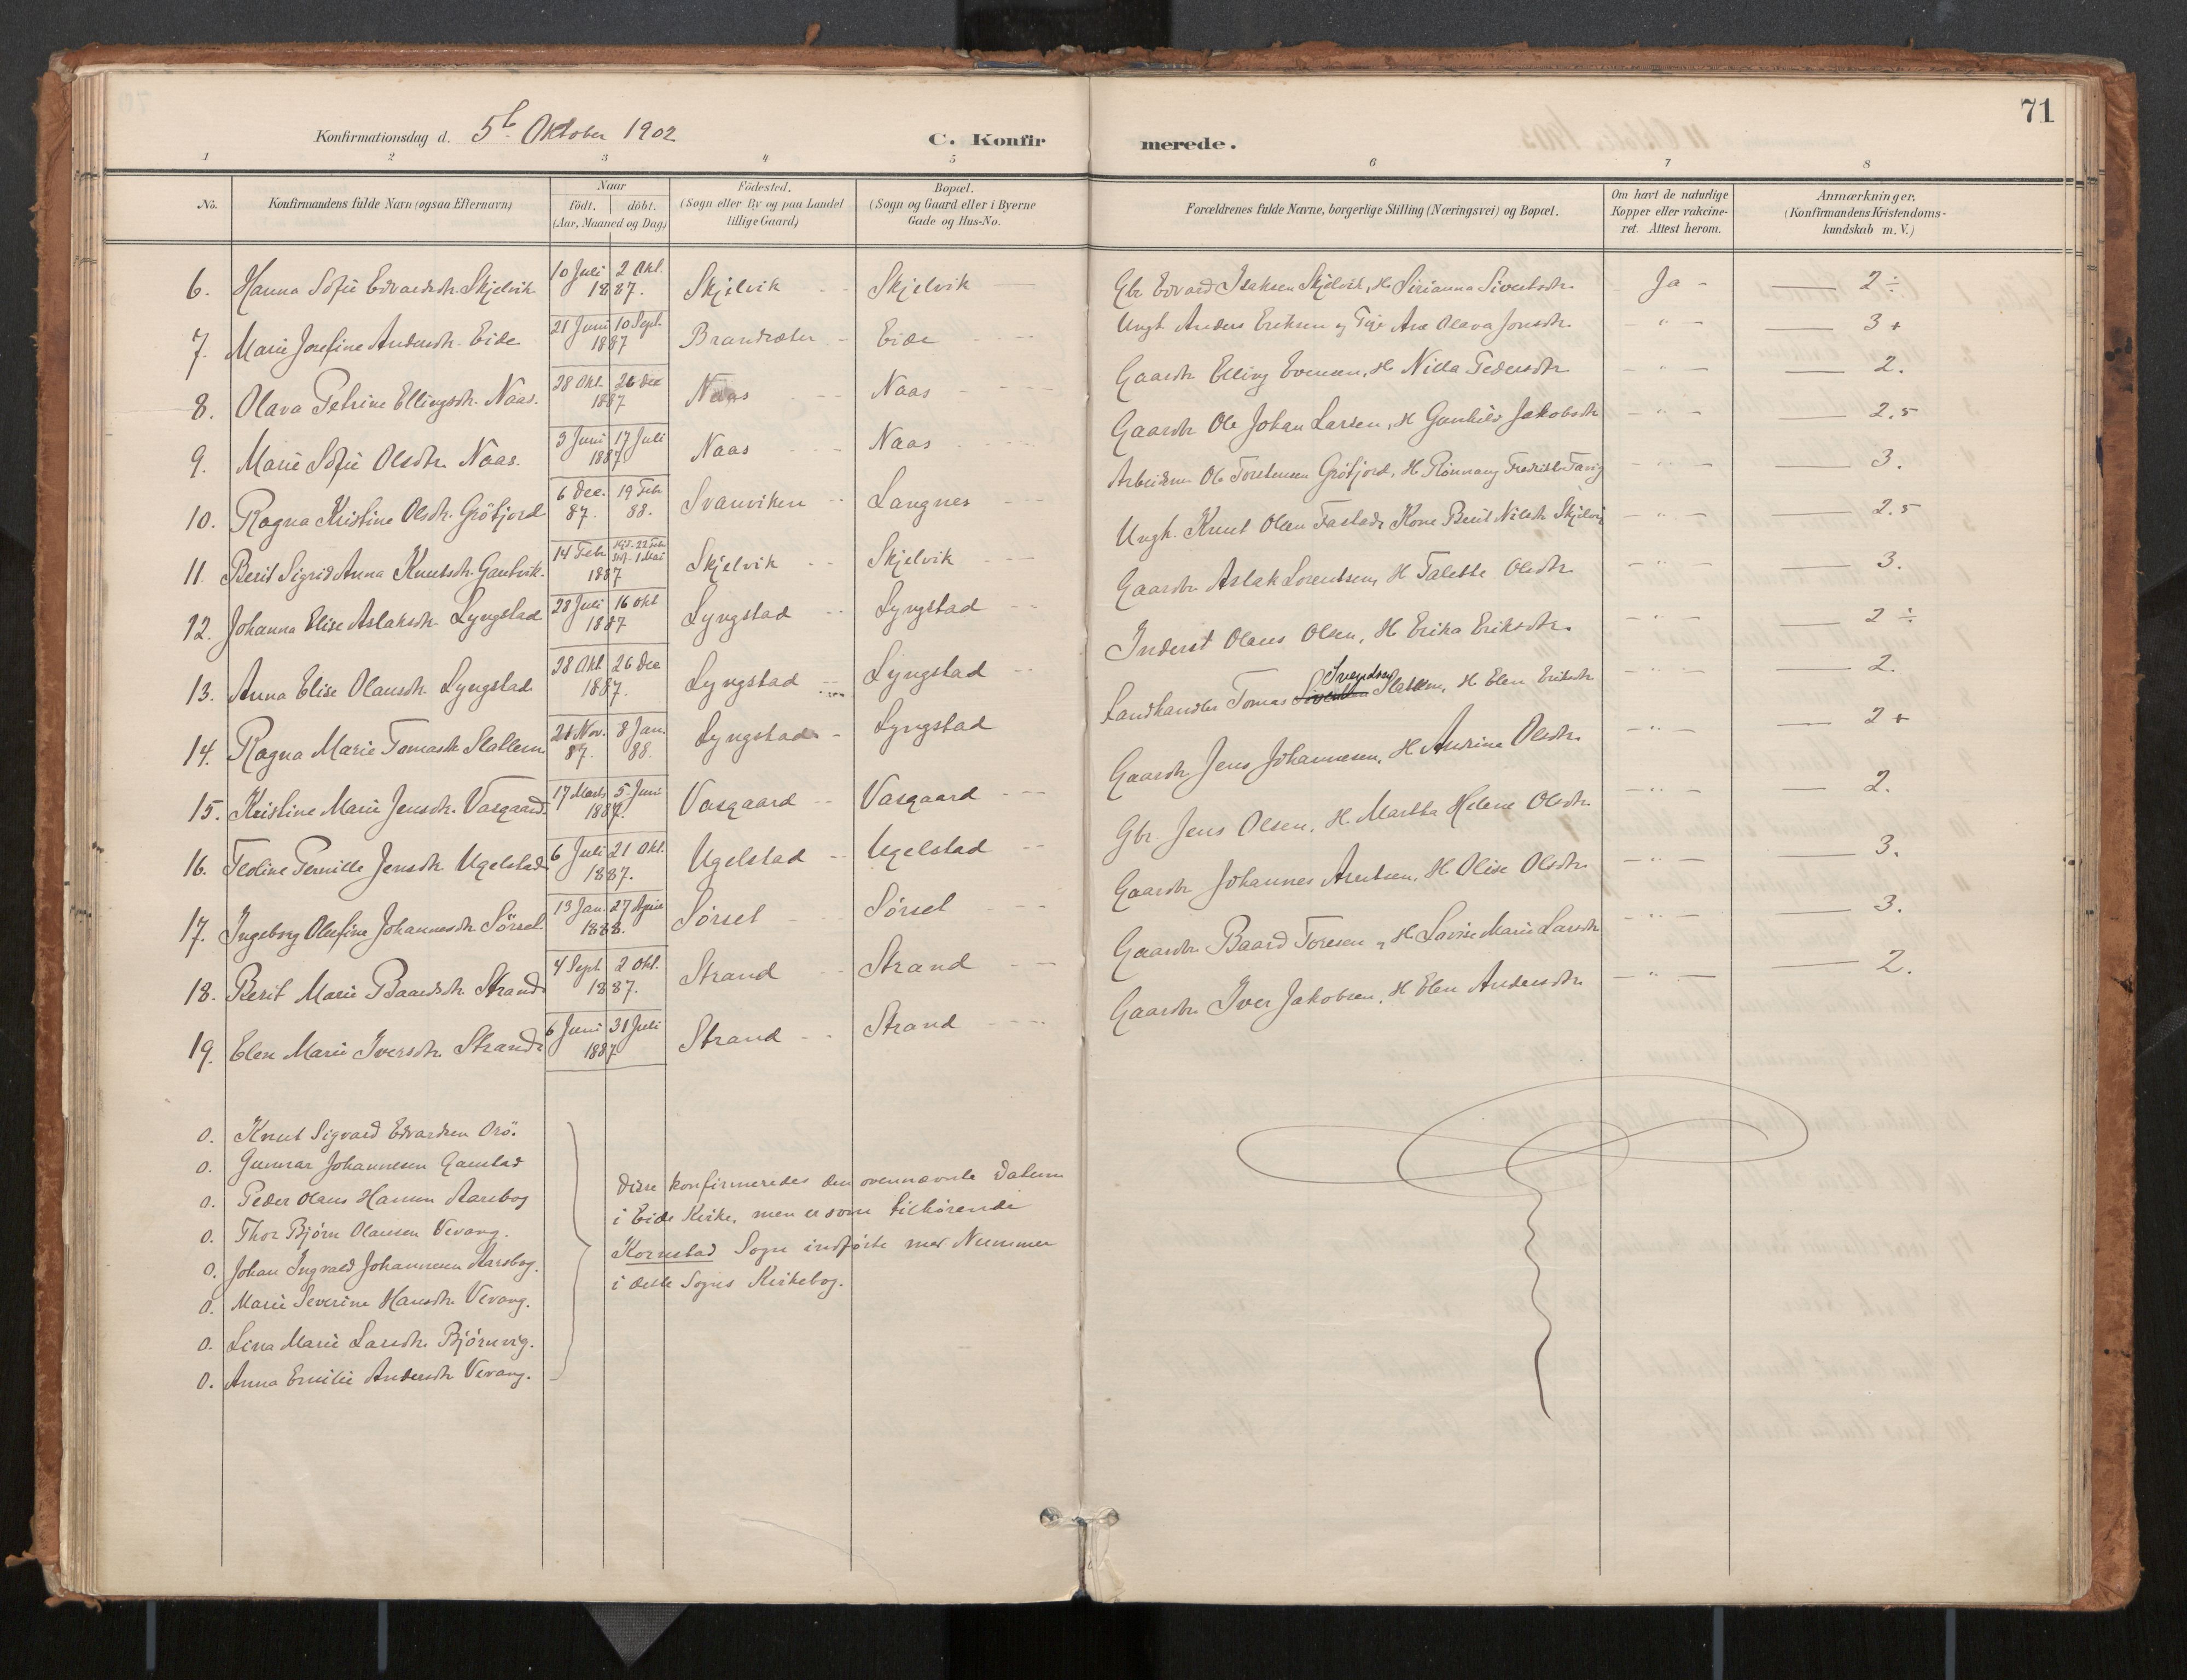 71
Konfirmationsdag d. 5t Oktober 1902 C. Konfirmerede.
1 2 3 4 5 6 7 8
No. Konfirmandens fulde Navn (ogsaa Efternavn) Naar födt. döbt. (Aar, Maaned og Dag) Födested. (Sogn eller By og paa Landet tillige Gaard) Bopæl. (Sogn og Gaard eller i Byerne Gade og Hus-No. Forældrenes fulde Navne, borgerlige Stilling (Næringsvei) og Bopæl. Om havt de naturlige Kopper eller vakcineret. Attest herom. Anmærkninger. (Konfirmandens Kristendomskundskab m. V.)
6. Hanna Sofie Edvardsdtr. Skjelvik 10 Juli 2 Okt. 1887. Skjelvik Skjelvik Gbr. Edvard Isaksen Skjelvik, H. Sirianna Sivertsdtr. Ja - 2 ÷
7. Marie Josefine Andersdtr. Eide 21 Juni 10 Sept. 1887 Brandsæter Eide Ungk. Anders Eriksen og Pige Ane Olava Jonsdtr. - " - 3 +
8. Olava Petrine Ellingsdtr. Naas. 28 Okt. 26 Dec 1887 Naas Naas Gaardbr. Elling Evensen, H. Nilla Pedersdtr. - " - 2.
9. Marie Sofie Olsdtr. Naas. 3 Juni 17 Juli 1887 Naas Naas Gaardbr. Ole Johan Larsen, H. Gunhild Jakobsdtr. - " - 2,5
10. Ragna Kristine Olsdtr. Gröfjord 6 Dec. 87. 19 Febr. 88. Svanviken Langnes Arbeidsm. Ole Torstensen Gröfjord, H. Rönnaug - " - 3.
11. Berit Sigrid Anna Knutsdtr. Gautvik. 14 Febr. 1 Mai 1887 Skjelvik Skjelvik Ungk. Knut Olsen Kone Berit Nilsdtr. Skjelvig - " - 2.5
12. Johanna Elise Aslaksdtr. Lyngstad 28 Juli 16 Okt 1887 Lyngstad Lyngstad Gaardbr. Aslak Lorentsen, H. Talette Olsdtr. - " - 3.
13. Anna Elise Olausdtr. Lyngstad 28 Okt. 26 Dec 1887. Lyngstad Lyngstad Inderst Olaus Olsen, H. Erika Eriksdtr. - " - 2 ÷
14. Ragna Marie Tomasdtr. Slatlem 21 Nov. 87. 8 Jan. 88. Lyngstad Lyngstad Landhandler Tomas Svendsen Slatlem, H. Elen Eriksdtr. - " - 2.
15. Kristine Marie Jensdtr. Vasgaard. 17 Marts 5. Juni 1887. Vasgaard Vasgaard Gaardbr. Jens Johannesen, H. Andrine Olsdtr. - " - 2 +
16. Teoline Pernille Jensdtr. Ugelstad 6 Juli 21 Okt. 1887. Ugelstad Ugelstad Gbr. Jens Olsen, H. Martha Helene Olsdtr. - " - 2.
17. Ingeborg Olufine Johannesdtr. Sörset. 13 Jan. 27 April 1888. Sörset Sörset Gaardbr. Johannes Arntsen, H. Olise Olsdtr. - " - 3.
18. Berit Marie Baardsdtr. Strand. 4 Sept. 2 Okt. 1887. Strand Strand Gaardbr. Baard Toresen, H. Lovise Marie Larsdtr. - " - 3.
19. Elen Marie Iversdtr. Strand. 6 Juni 31 Juli 1887 Strand Strand Gaardbr. Iver Jakobsen, H. Elen Andersdtr. - " - 2.
0. Knut Sigvard Edvardsen Orö.
0. Gunnar Johannesen Gaustad
0. Peder Olaus Hansen Aarsbog
0. Thor Björn Olausen Vevang.
0. Johan Ingvald Johannesen Aarsbog.
0. Marie Severine Hansdtr. Vevang.
0. Lina Marie Larsdtr. Björnvig.
0. Anna Emilie Andersdtr. Vevang.
Disse konfirmeredes den ovennævnte Datum
i Eide Kirke, men er som tilhörende
Kornstad Sogn indförte med Nummer
i dette Sogns Kirkebog.